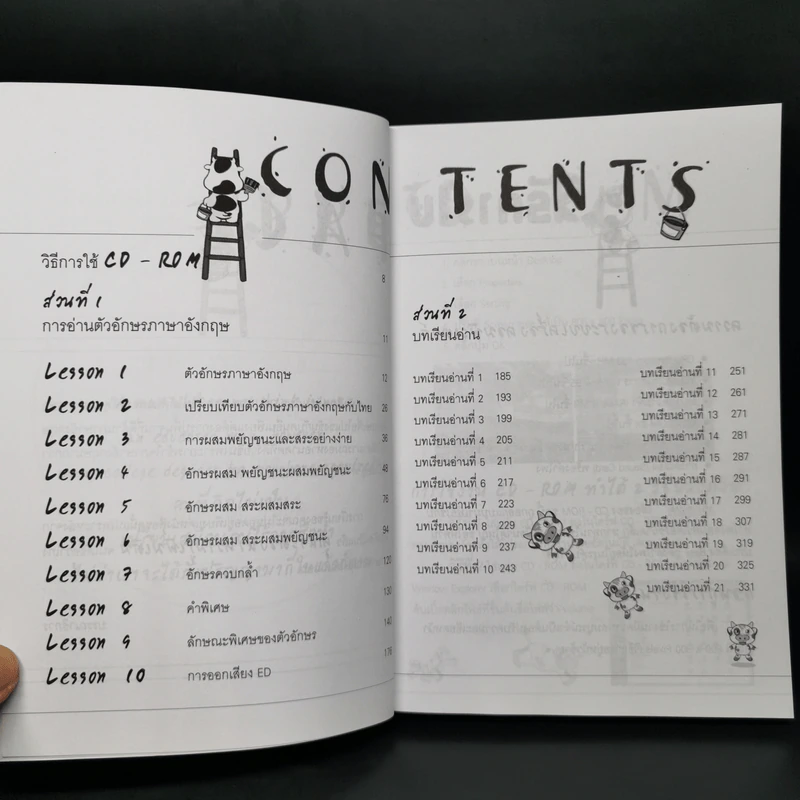 CONTENTS
วิธีการใช้ CD - ROM 8
ส่วนที่ 1
การอ่านตัวอักษรภาษาอังกฤษ 11
Lesson 1 ตัวอักษรภาษาอังกฤษ 12
Lesson 2 เปรียบเทียบตัวอักษรภาษาอังกฤษกับไทย 26
Lesson 3 การผสมพยัญชนะและสระอย่างง่าย 36
Lesson 4 อักษรผสม พยัญชนะผสมพยัญชนะ 48
Lesson 5 อักษรผสม สระผสมสระ 76
Lesson 6 อักษรผสม สระผสมพยัญชนะ 94
Lesson 7 อักษรควบกล้ำ 120
Lesson 8 คำพิเศษ 130
Lesson 9 ลักษณะพิเศษของตัวอักษร 140
Lesson 10 การออกเสียง ED 176
ส่วนที่ 2
บทเรียนอ่าน
บทเรียนอ่านที่ 1 185
บทเรียนอ่านที่ 2 193
บทเรียนอ่านที่ 3 199
บทเรียนอ่านที่ 4 205
บทเรียนอ่านที่ 5 211
บทเรียนอ่านที่ 6 217
บทเรียนอ่านที่ 7 223
บทเรียนอ่านที่ 8 229
บทเรียนอ่านที่ 9 237
บทเรียนอ่านที่ 10 243
บทเรียนอ่านที่ 11 251
บทเรียนอ่านที่ 12 261
บทเรียนอ่านที่ 13 271
บทเรียนอ่านที่ 14 281
บทเรียนอ่านที่ 15 287
บทเรียนอ่านที่ 16 291
บทเรียนอ่านที่ 17 299
บทเรียนอ่านที่ 18 307
บทเรียนอ่านที่ 19 319
บทเรียนอ่านที่ 20 325
บทเรียนอ่านที่ 21 331